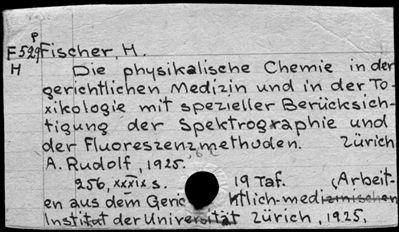 P
F529 Fischer, H.
H
Die physikalische Chemie in der
gerichtlichen Medizin und in der To-
xikologie mit spezieller Berücksich-
tigung der Spektrographie und
der Fluoreszenzmethoden. Zürich
A. Rudolf, 1925.
256, XXXIX S. 19 Taf. (Arbeit-
en aus dem Geric htlich-medizinischen
Institut der Universität Zürich, 1925.